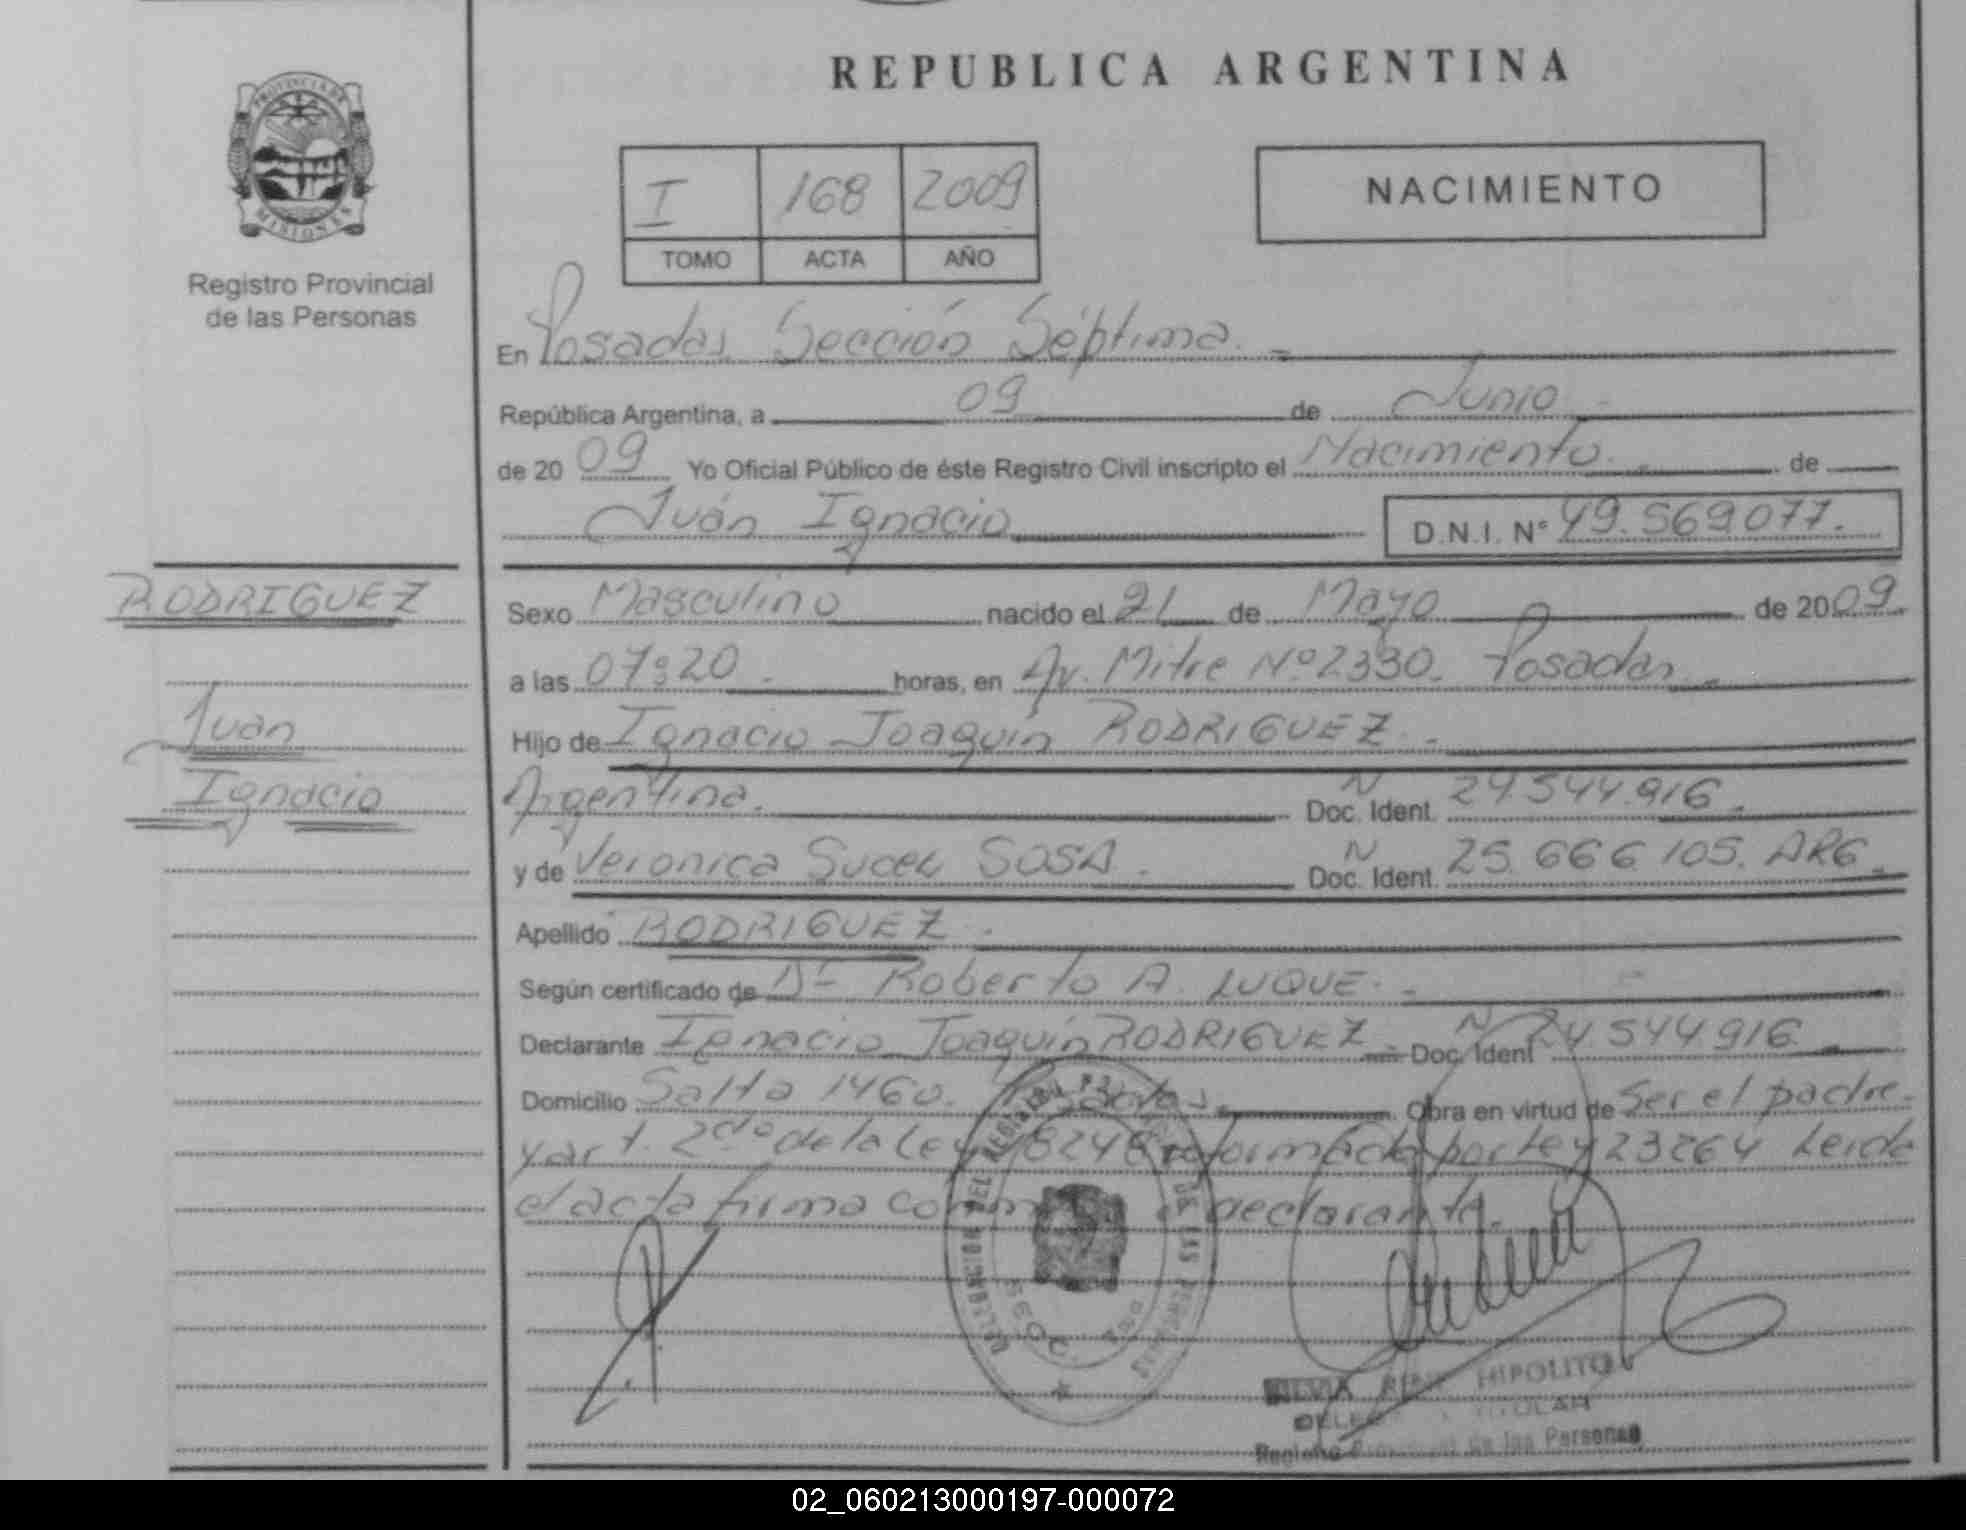 REPUBLICA ARGENTINA
PROVINCIA DE
MISIONES
Registro Provincial
de las Personas
I 168 2009
TOMO ACTA AÑO
NACIMIENTO
En Posadas Sección Séptima.
República Argentina, a 09 de Junio
de 20 09 Yo Oficial Público de éste Registro Civil inscripto el Nacimiento. de
Juán Ignacio D.N.I. Nº 49.569077.
RODRIGUEZ
Juán
Ignacio
Sexo Masculino nacido el 21 de Mayo de 2009
a las 07:20. horas, en Av. Mitre Nº 2330. Posadas.
Hijo de Ignacio Joaquín RODRIGUEZ.
Argentina. Doc. Ident. N 24.544.916.
y de Veronica Sucel SOSA. Doc. Ident. N 25.666.105. ARG.
Apellido RODRIGUEZ.
Según certificado de Dr Roberto A. LUQUE.
Declarante Ignacio Joaquín RODRIGUEZ Doc. Ident N 24.544.916
Domicilio Salta 1460. Posadas. Obra en virtud de Ser el padre
y art. 2do de la Ley 18248 reformada por Ley 23264 Leida
el acta firma el declarante.
DELEGACION DEL REGISTRO DE LAS PERSONAS
SECC.
HIPOLITO
TITULAR
Registro Provincial de las Personas
02_060213000197-000072